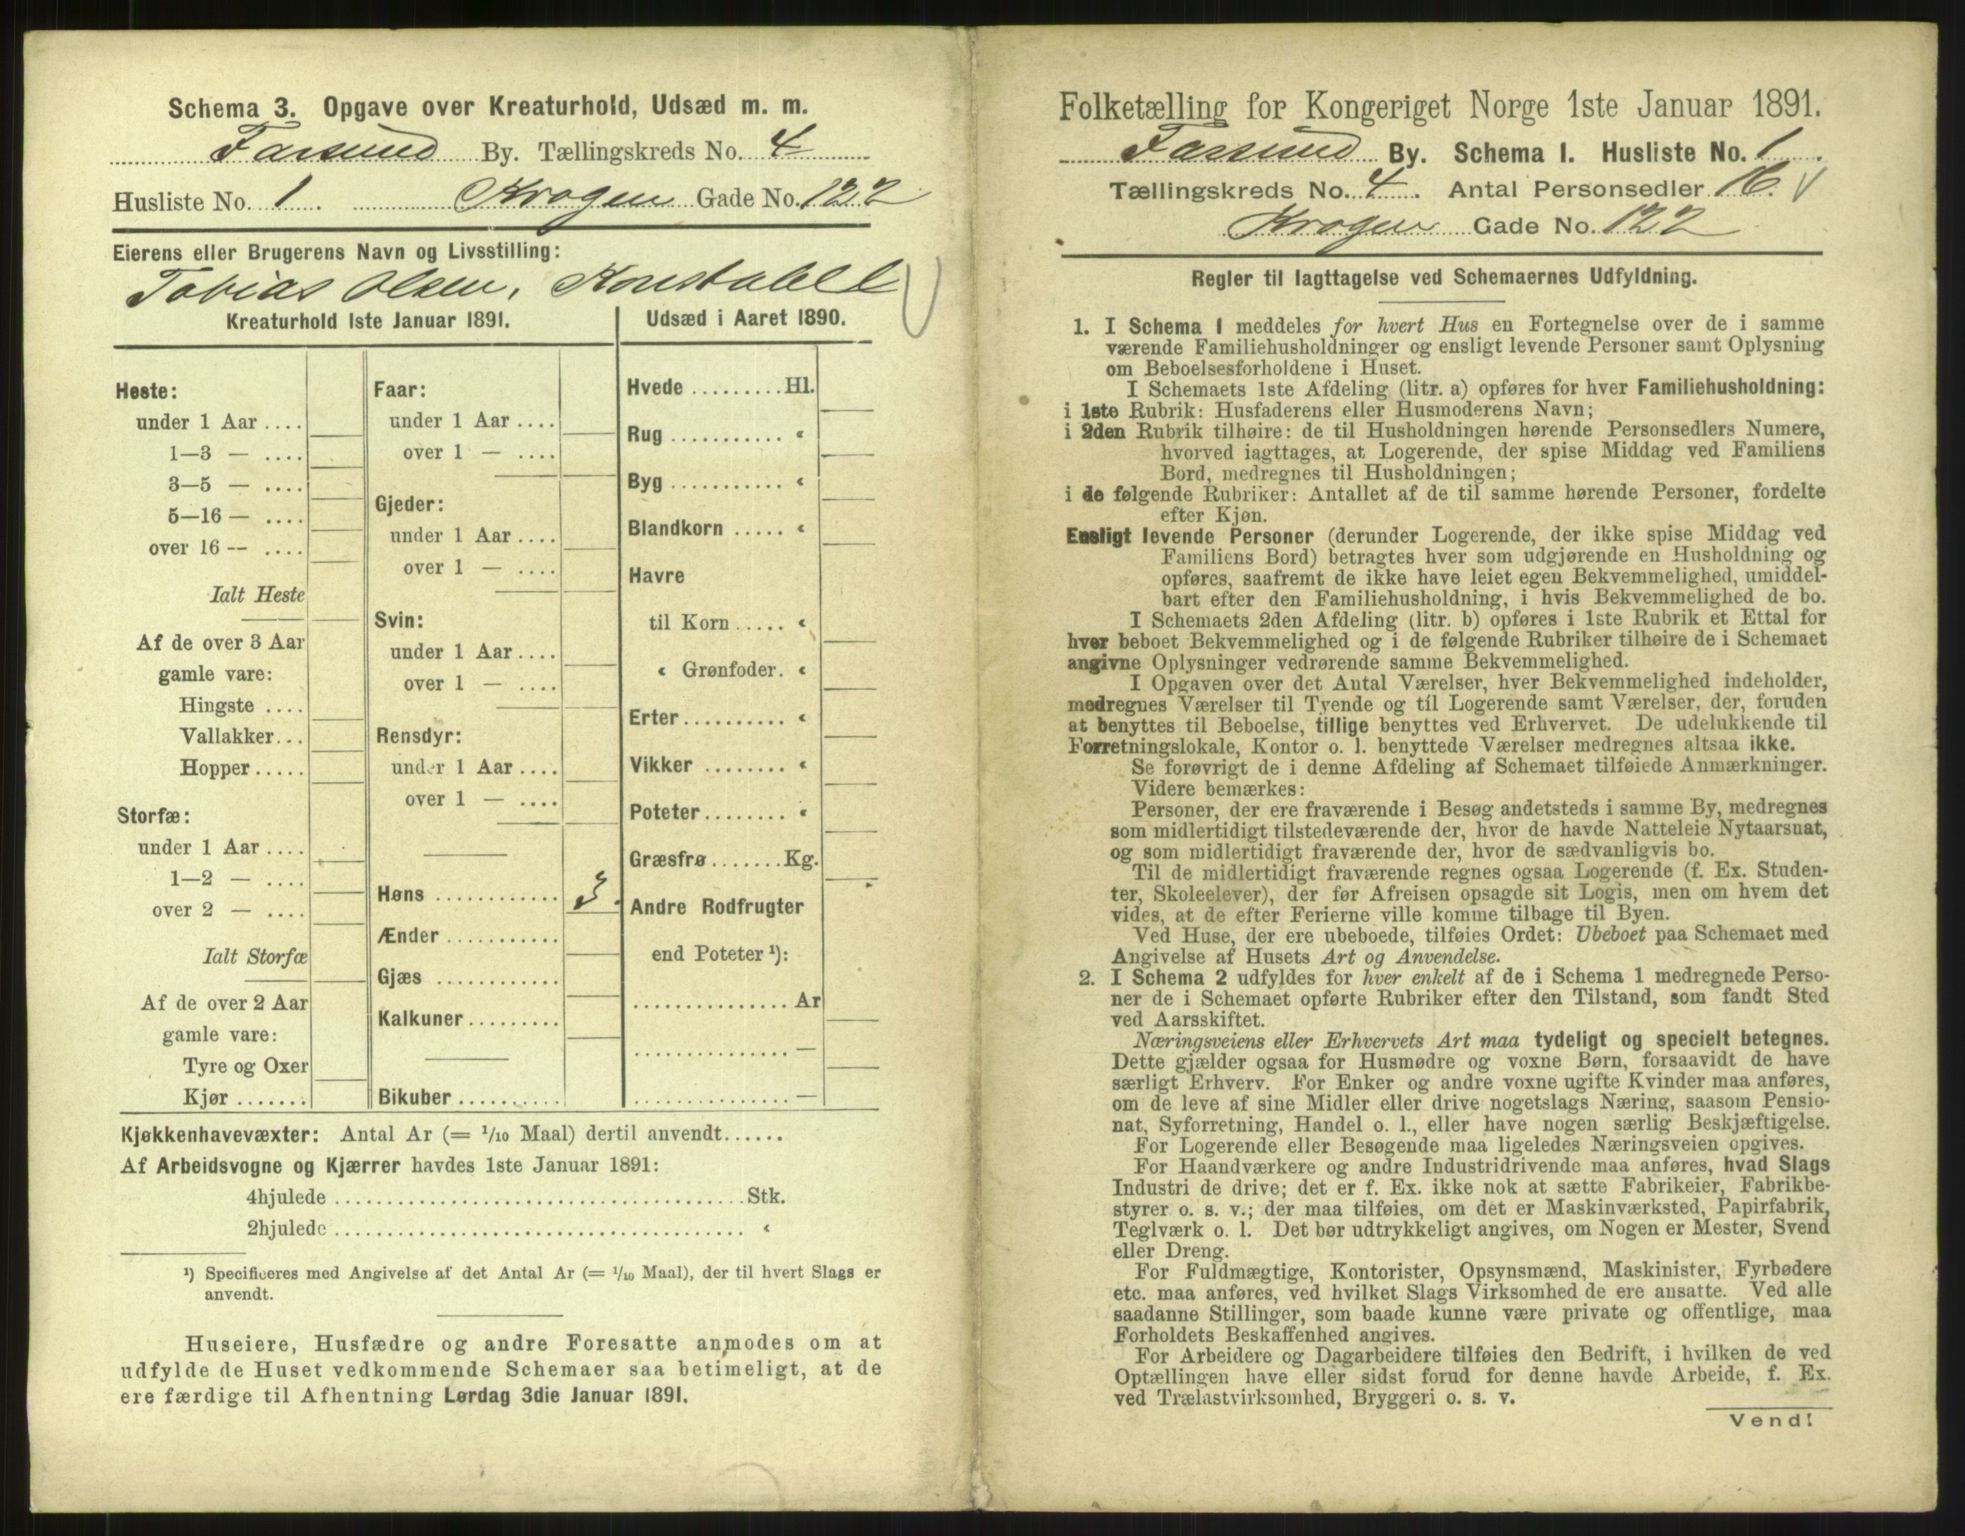 Schema 3. Opgave over Kreaturhold, Udsæd m. m.
Farsund By. Tællingskreds No. 4
Husliste No. 1. Krogen Gade No. 122
Eierens eller Brugerens Navn og Livsstilling:
Tobias Olsen, Konstabel
Kreaturhold 1ste Januar 1891.
Heste:
under 1 Aar ....
1—3 — ....
3—5 — ....
5—16 — ....
over 16 — ....
Ialt Heste
Af de over 3 Aar
gamle vare:
Hingste ....
Vallakker...
Hopper.....
Storfæ:
under 1 Aar ....
1—2 — ....
over 2 — ....
Ialt Storfæ
Af de over 2 Aar
gamle vare:
Tyre og Oxer
Kjør .......
Faar:
under 1 Aar ....
over 1 — ....
Gjeder:
under 1 Aar ....
over 1 — ....
Svin:
under 1 Aar ....
over 1 — ....
Rensdyr:
under 1 Aar ....
over 1 — ....
Høns ............ 3.
Ænder ...........
Gjæs ............
Kalkuner.........
Bikuber ..........
Udsæd i Aaret 1890.
Hvede .........Hl.
Rug ........... «
Byg ........... «
Blandkorn ..... «
Havre
til Korn ..... «
« Grønfoder. «
Erter.......... «
Vikker ........ «
Poteter........ «
Græsfrø .......Kg.
Andre Rodfrugter
end Poteter ¹):
............... Ar
............... —
............... —
Kjøkkenhavevæxter: Antal Ar (= 1/10 Maal) dertil anvendt......
Af Arbeidsvogne og Kjærrer havdes 1ste Januar 1891:
4hjulede ....................................... Stk.
2hjulede ....................................... «
¹) Specificeres med Angivelse af det Antal Ar (= 1/10 Maal), der til hvert Slags er
anvendt.
Huseiere, Husfædre og andre Foresatte anmodes om at
udfylde de Huset vedkommende Schemaer saa betimeligt, at de
ere færdige til Afhentning Lørdag 3die Januar 1891.
Folketælling for Kongeriget Norge 1ste Januar 1891.
Farsund By. Schema 1. Husliste No. 1.
Tællingskreds No. 4. Antal Personsedler 16.
Krogen Gade No. 122
Regler til Iagttagelse ved Schemaernes Udfyldning.
1. I Schema 1 meddeles for hvert Hus en Fortegnelse over de i samme
værende Familiehusholdninger og ensligt levende Personer samt Oplysning
om Beboelsesforholdene i Huset.
I Schemaets 1ste Afdeling (litr. a) opføres for hver Familiehusholdning:
i 1ste Rubrik: Husfaderens eller Husmoderens Navn;
i 2den Rubrik tilhøire: de til Husholdningen hørende Personsedlers Numere,
hvorved iagttages, at Logerende, der spise Middag ved Familiens
Bord, medregnes til Husholdningen;
i de følgende Rubriker: Antallet af de til samme hørende Personer, fordelte
efter Kjøn.
Ensligt levende Personer (derunder Logerende, der ikke spise Middag ved
Familiens Bord) betragtes hver som udgjørende en Husholdning og
opføres, saafremt de ikke have leiet egen Bekvemmelighed, umiddel-
bart efter den Familiehusholdning, i hvis Bekvemmelighed de bo.
I Schemaets 2den Afdeling (litr. b) opføres i 1ste Rubrik et Ettal for
hver beboet Bekvemmelighed og i de følgende Rubriker tilhøire de i Schemaet
angivne Oplysninger vedrørende samme Bekvemmelighed.
I Opgaven over det Antal Værelser, hver Bekvemmelighed indeholder,
medregnes Værelser til Tyende og til Logerende samt Værelser, der, foruden
at benyttes til Beboelse, tillige benyttes ved Erhvervet. De udelukkende til
Forretningslokale, Kontor o. l. benyttede Værelser medregnes altsaa ikke.
Se forøvrigt de i denne Afdeling af Schemaet tilføiede Anmærkninger.
Videre bemærkes:
Personer, der ere fraværende i Besøg andetsteds i samme By, medregnes
som midlertidigt tilstedeværende der, hvor de havde Natteleie Nytaarsnat,
og som midlertidigt fraværende der, hvor de sædvanligvis bo.
Til de midlertidigt fraværende regnes ogsaa Logerende (f. Ex. Studen-
ter, Skoleelever), der før Afreisen opsagde sit Logis, men om hvem det
vides, at de efter Ferierne ville komme tilbage til Byen.
Ved Huse, der ere ubeboede, tilføies Ordet: Ubeboet paa Schemaet med
Angivelse af Husets Art og Anvendelse.
2. I Schema 2 udfyldes for hver enkelt af de i Schema 1 medregnede Perso-
ner de i Schemaet opførte Rubriker efter den Tilstand, som fandt Sted
ved Aarsskiftet.
Næringsveiens eller Erhvervets Art maa tydeligt og specielt betegnes.
Dette gjælder ogsaa for Husmødre og voxne Børn, forsaavidt de have
særligt Erhverv. For Enker og andre voxne ugifte Kvinder maa anføres,
om de leve af sine Midler eller drive nogetslags Næring, saasom Pensio-
nat, Syforretning, Handel o. l., eller have nogen særlig Beskjæftigelse.
For Logerende eller Besøgende maa ligeledes Næringsveien opgives.
For Haandværkere og andre Industridrivende maa anføres, hvad Slags
Industri de drive; det er f. Ex. ikke nok at sætte Fabrikeier, Fabrikbe-
styrer o. s. v.; der maa tilføies, om det er Maskinværksted, Papirfabrik,
Teglværk o. l. Det bør udtrykkeligt angives, om Nogen er Mester, Svend
eller Dreng.
For Fuldmægtige, Kontorister, Opsynsmænd, Maskinister, Fyrbødere
etc. maa anføres, ved hvilket Slags Virksomhed de ere ansatte. Ved alle
saadanne Stillinger, som baade kunne være private og offentlige, maa
Forholdets Beskaffenhed angives.
For Arbeidere og Dagarbeidere tilføies den Bedrift, i hvilken de ved
Optællingen have eller sidst forud for denne havde Arbeide, f. Ex.
ved Trælastvirksomhed, Bryggeri o. s. v.
Vend!